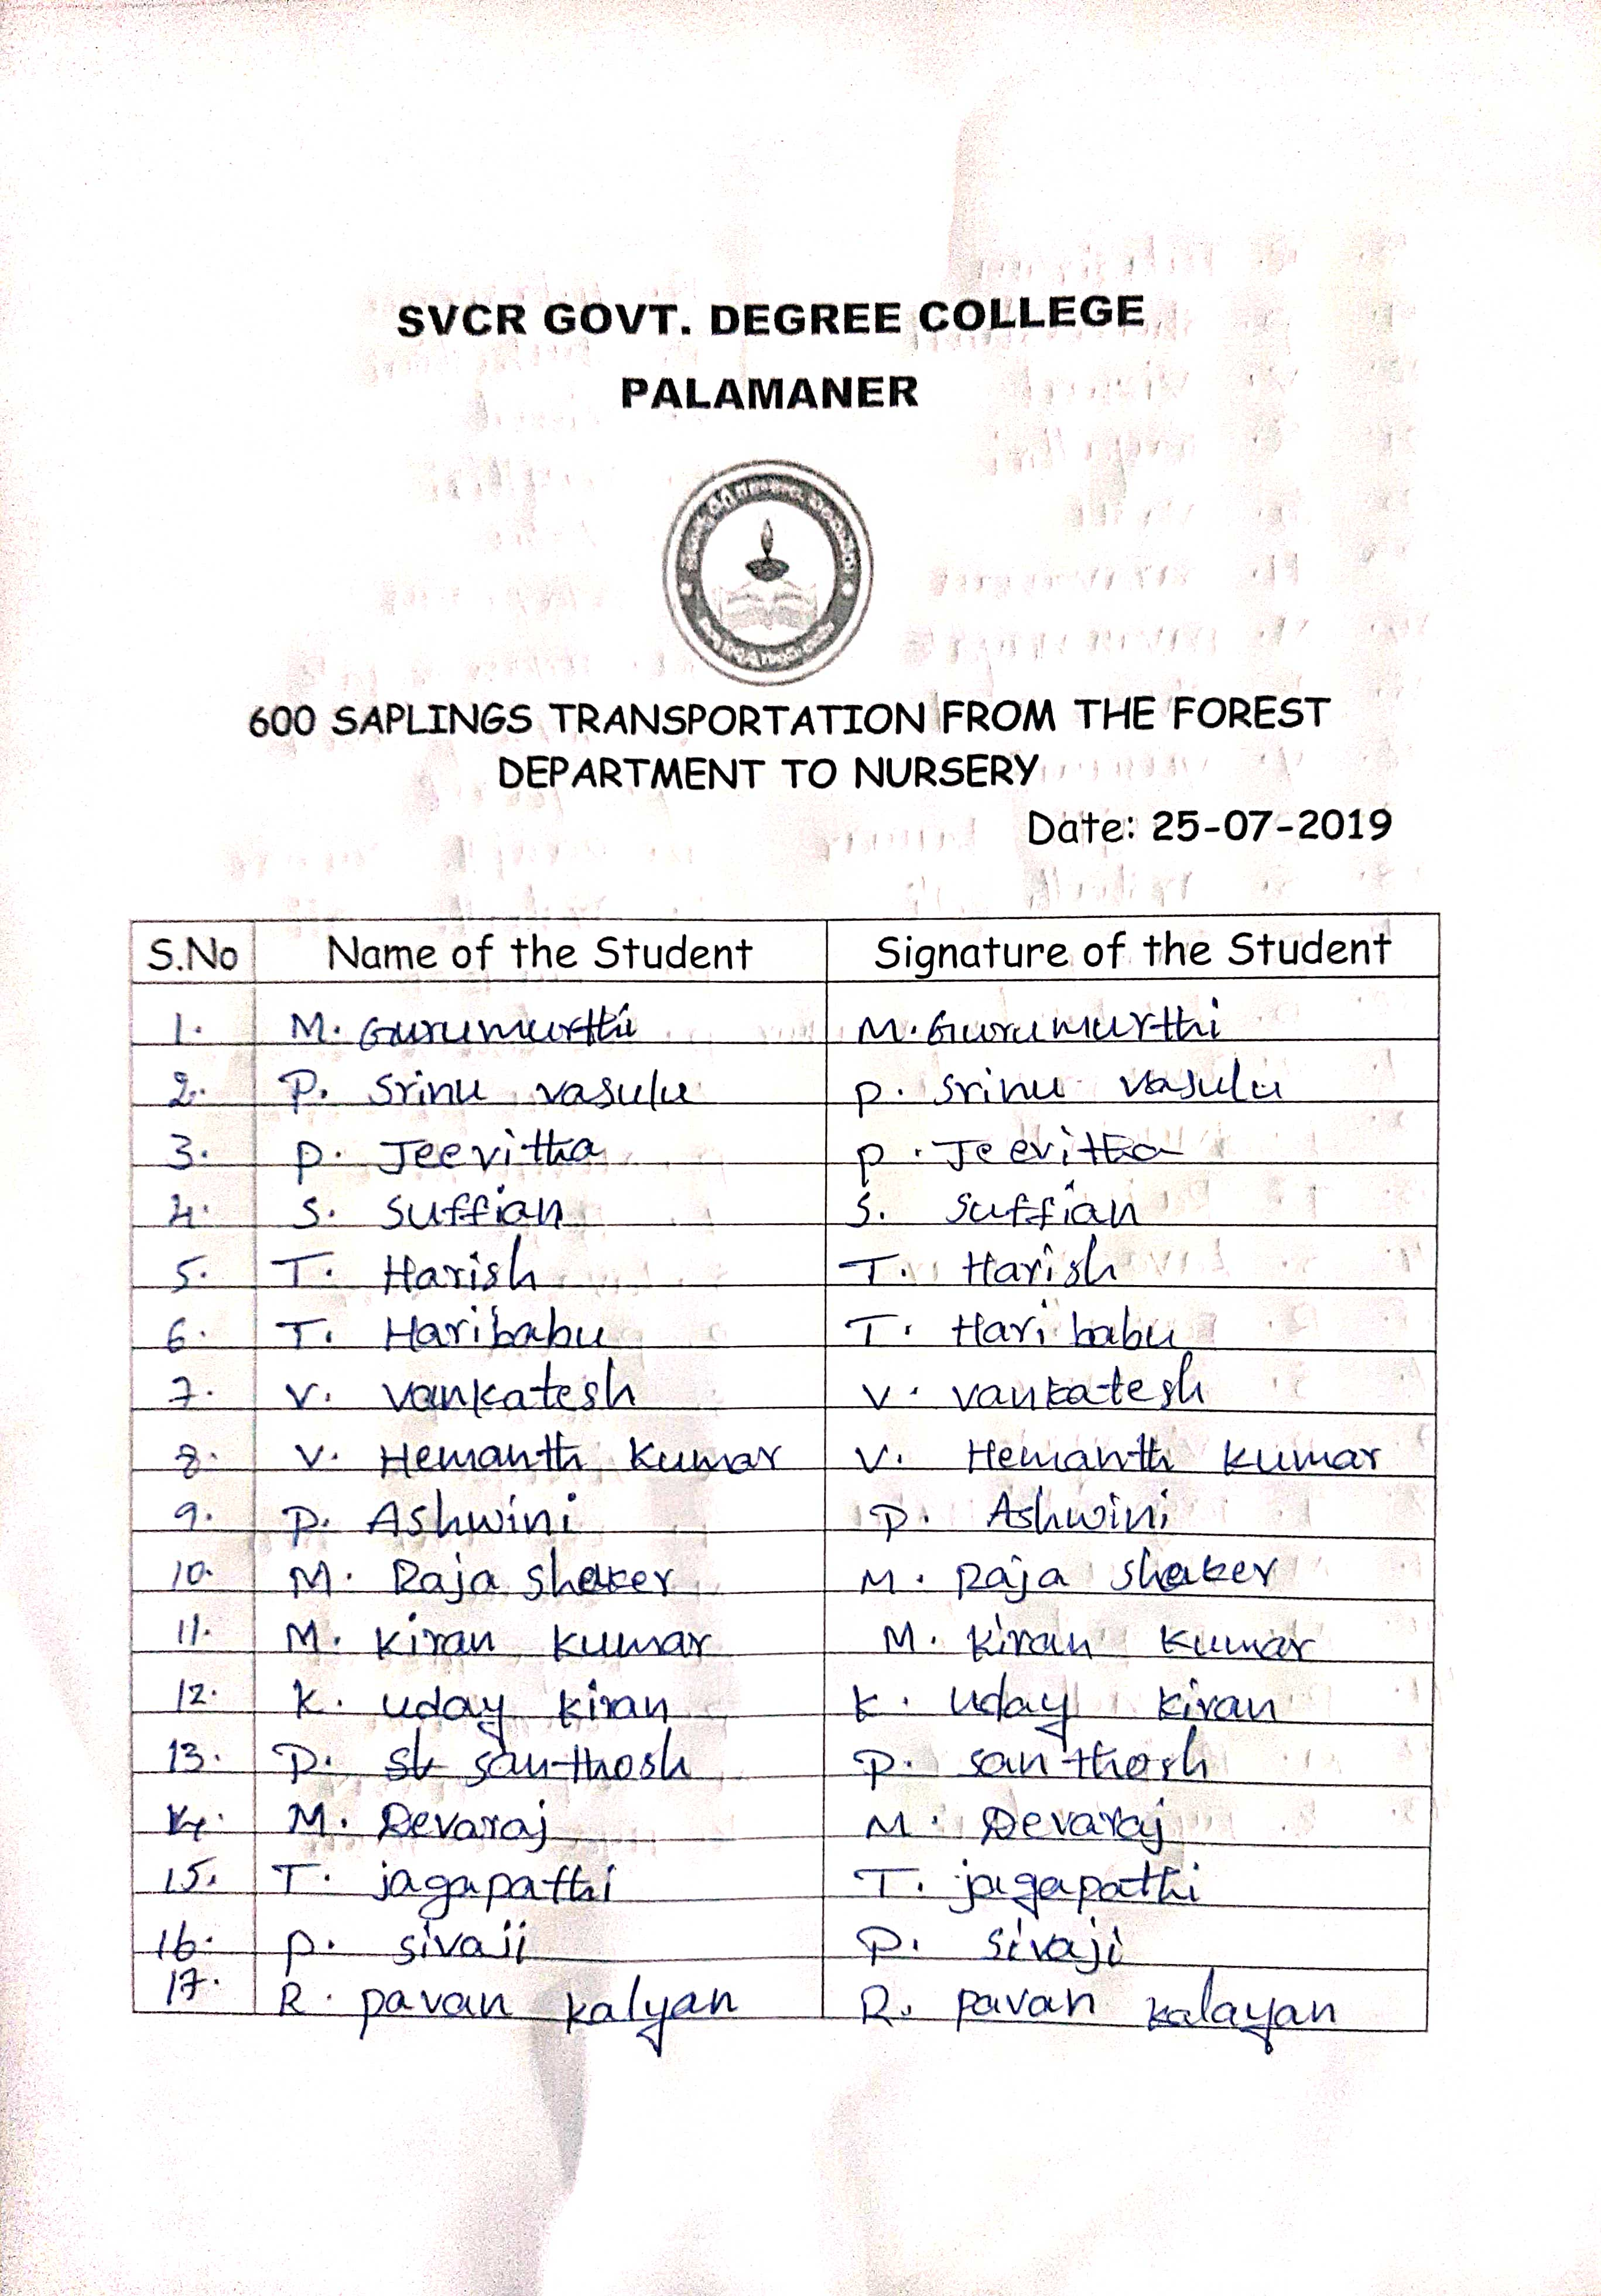 SVCR GOVT. DEGREE COLLEGE
PALAMANER
600 SAPLINGS TRANSPORTATION FROM THE FOREST
DEPARTMENT TO NURSERY
Date: 25-07-2019
S.No Name of the Student Signature of the Student
1. M. Gurumurthi M. Gurumurthi
2. P. Srinu vasulu P. Srinu vasulu
3. P. Jeevitha P. Jeevitha
4. S. Suffian S. Suffian
5. T. Harish T. Harish
6. T. Haribabu T. Hari babu
7. V. Vankatesh V. Vankatesh
8. V. Hemanth Kumar V. Hemanth Kumar
9. P. Ashwini P. Ashwini
10. M. Raja sheker M. Raja sheker
11. M. Kiran Kumar M. Kiran Kumar
12. K. Uday Kiran K. Uday Kiran
13. P. Santhosh P. Santhosh
14. M. Devaraj M. Devaraj
15. T. jagapathi T. jagapathi
16. P. Sivaji P. Sivaji
17. R. Pavan Kalyan R. Pavan Kalayan